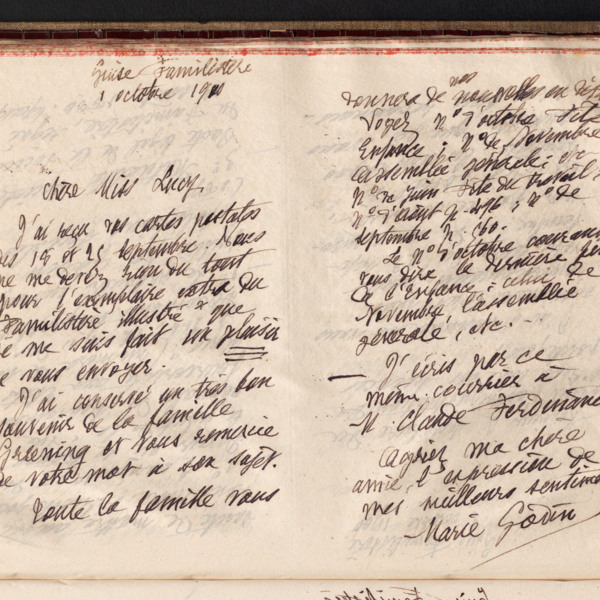 Guise Familistère
1 octobre 1901
Chère Miss Lucy,
J'ai reçu vos cartes postales
des 18 et 25 septembre. Vous
ne me devez rien du tout
pour l'exemplaire extra du
Familistère illustré que
je me suis fait un plaisir
de vous envoyer.
J'ai conservé un très bon
souvenir de la famille
Greening et vous remercie
de votre mot à son sujet.
Toute la famille vous
donnera de nos nouvelles en
Voyez n° d'octobre fête
Enfance ; n° de Novembre
assemblée générale ; etc
N° de Juin fête du travail
N° d'août p. ; n° de
septembre p. 560.
Le N° d'octobre courant
vous dire la dernière
de l'Enfance ; celui de
Novembre l'assemblée
générale, etc.
— J'écris par ce
même courrier à
M Claude Ferdinand
Agréez ma chère
amie, l'expression de
mes meilleurs
Marie Godin